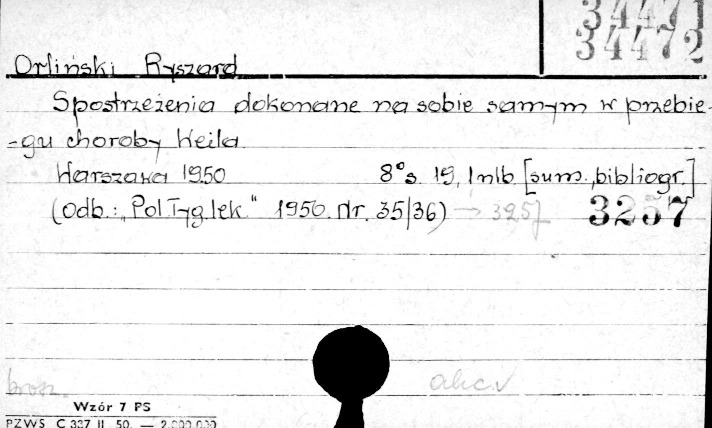 34471
34472
Orliński Ryszard
Spostrzeżenia dokonane na sobie samym w przebie-
-gu choroby Weila
Warszawa 1950 8° s. 19, 1 nlb. [sum., bibliogr.]
(Odb.: „Pol.Tyg.lek." 1950. Nr. 35/36) → 3257 3257
brosz. akc. v
Wzór 7 PS
PZWS C 337 II 50. — 2.000.000